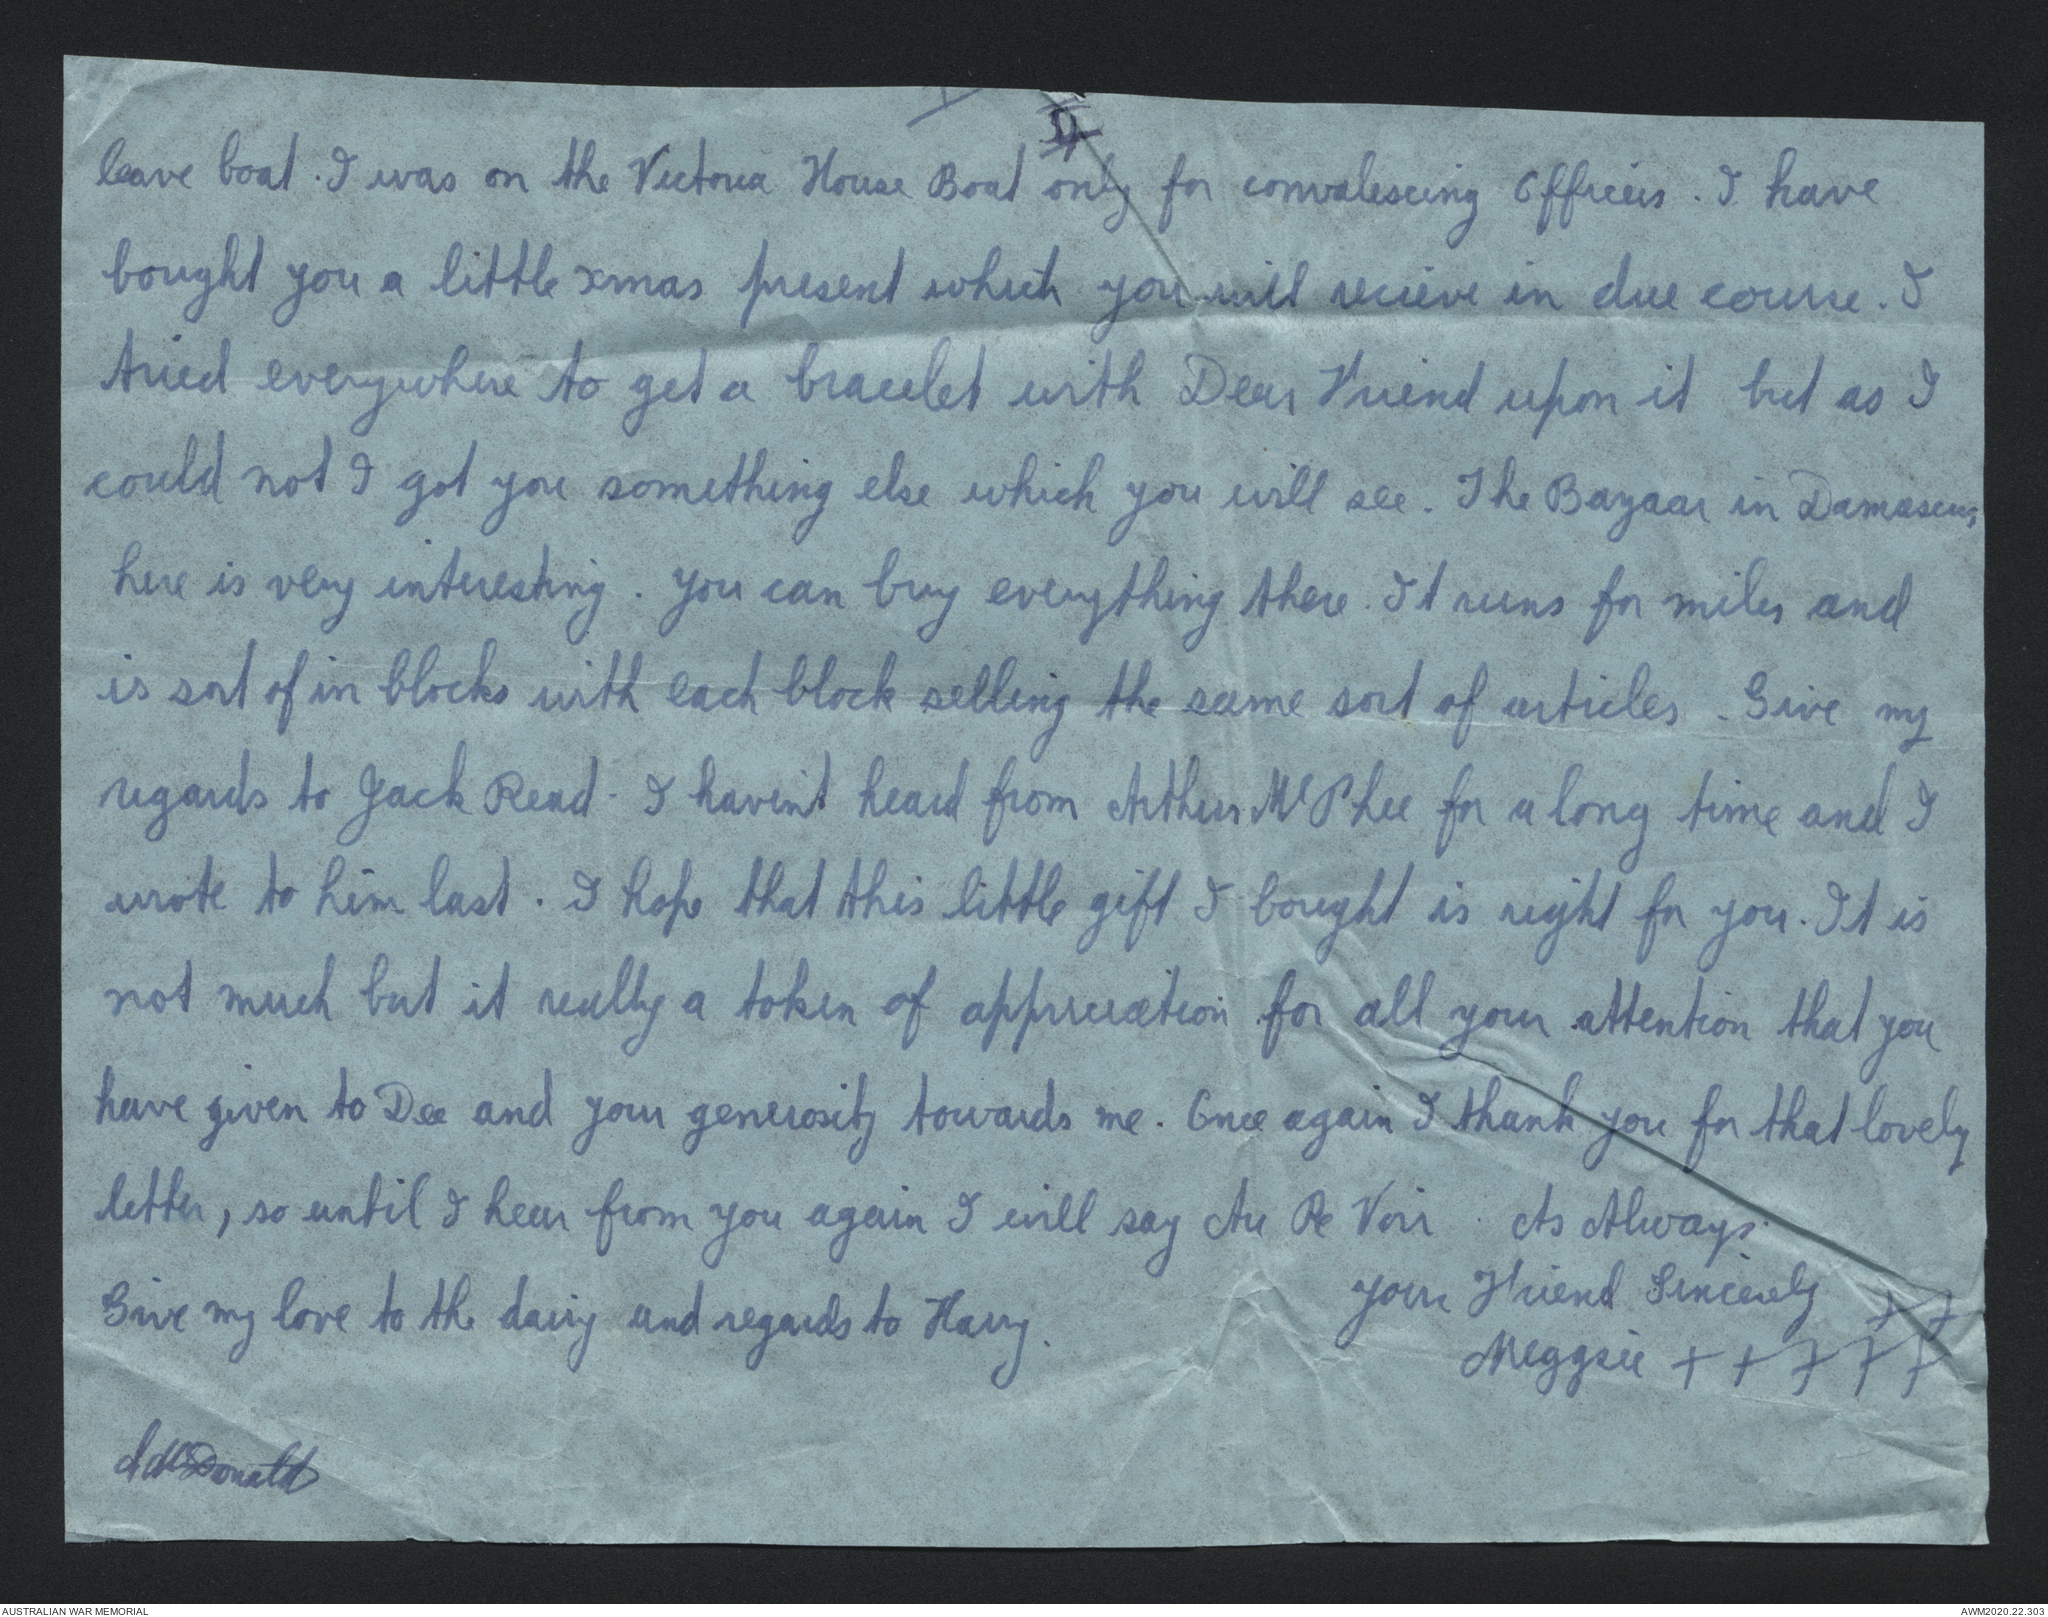 leave boat. I was on the Victoria House Boat only for convalescing Officers. I have
bought you a little xmas present which you will recieve in due course. I
tried everywhere to get a bracelet with Dear Friend upon it but as I
could not I got you something else which you will see. The Bazaar in Damascus
here is very interesting. You can buy everything there. It runs for miles and
is sort of in blocks with each block selling the same sort of articles. Give my
regards to Jack Read. I haven't heard from Arthur McPhee for a long time and I
wrote to him last. I hope that this little gift I bought is right for you. It is
not much but it really a token of appreciation for all your attention that you
have given to Dee and your generosity towards me. Once again I thank you for that lovely
letter, so until I hear from you again I will say Au Re Voir. As Always.
Your Friend Sincerely ++
Give my love to the dairy and regards to Harry.
Meggsie +++++
A McDonald
AUSTRALIAN WAR MEMORIAL
AWM2020.22.303